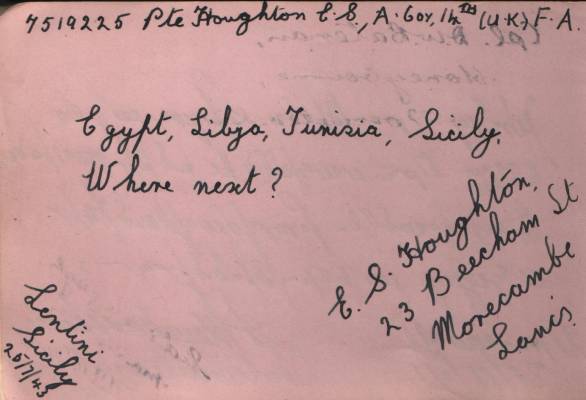 7519225 Pte Houghton E.S., A. Coy, 14TH (U.K.) F.A.
Egypt, Libya, Tunisia, Sicily.
Where next?
E. S. Houghton,
23 Beecham St
Morecambe
Lancs.
Lentini
Sicily
26/7/43